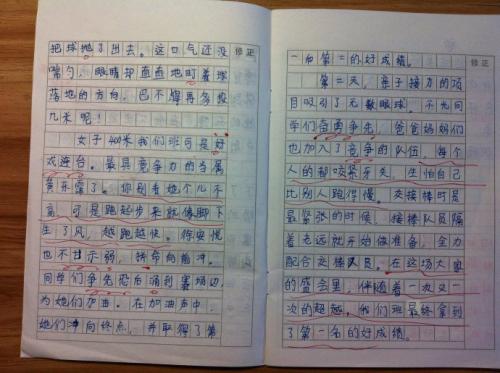 把球抛了出去。这口气还没 修正
喘匀，眼睛却直直地盯着球
落地的方向，巴不得再多投
几米呢！
女子400米我们班可是好
戏连台。最具竞争力的当属
黄 了。你别看她个儿不
高，可是跑起步来就像脚下
生了风，越跑越快。徐安悦
也不甘示弱，拼命向前冲。
同学们争先恐后涌到赛场边，
为她们加油。在加油声中，
她们冲向终点，并取得了第
一和第二的好成绩。 修正
第二天，亲子接力的项
目吸引了无数眼球。不光同
学们奋勇争先，爸爸妈妈们
也加入了竞争的队伍，每个
人的都咬紧牙关，生怕自己
比别人跑得慢。交接棒时是
最紧张的时候，接棒队员隔
着老远就开始做准备，全力
配合交棒队员。在这场大家
的盛会里，伴随着一次又一
次的超越，我们班最终拿到
了第一名的好成绩。